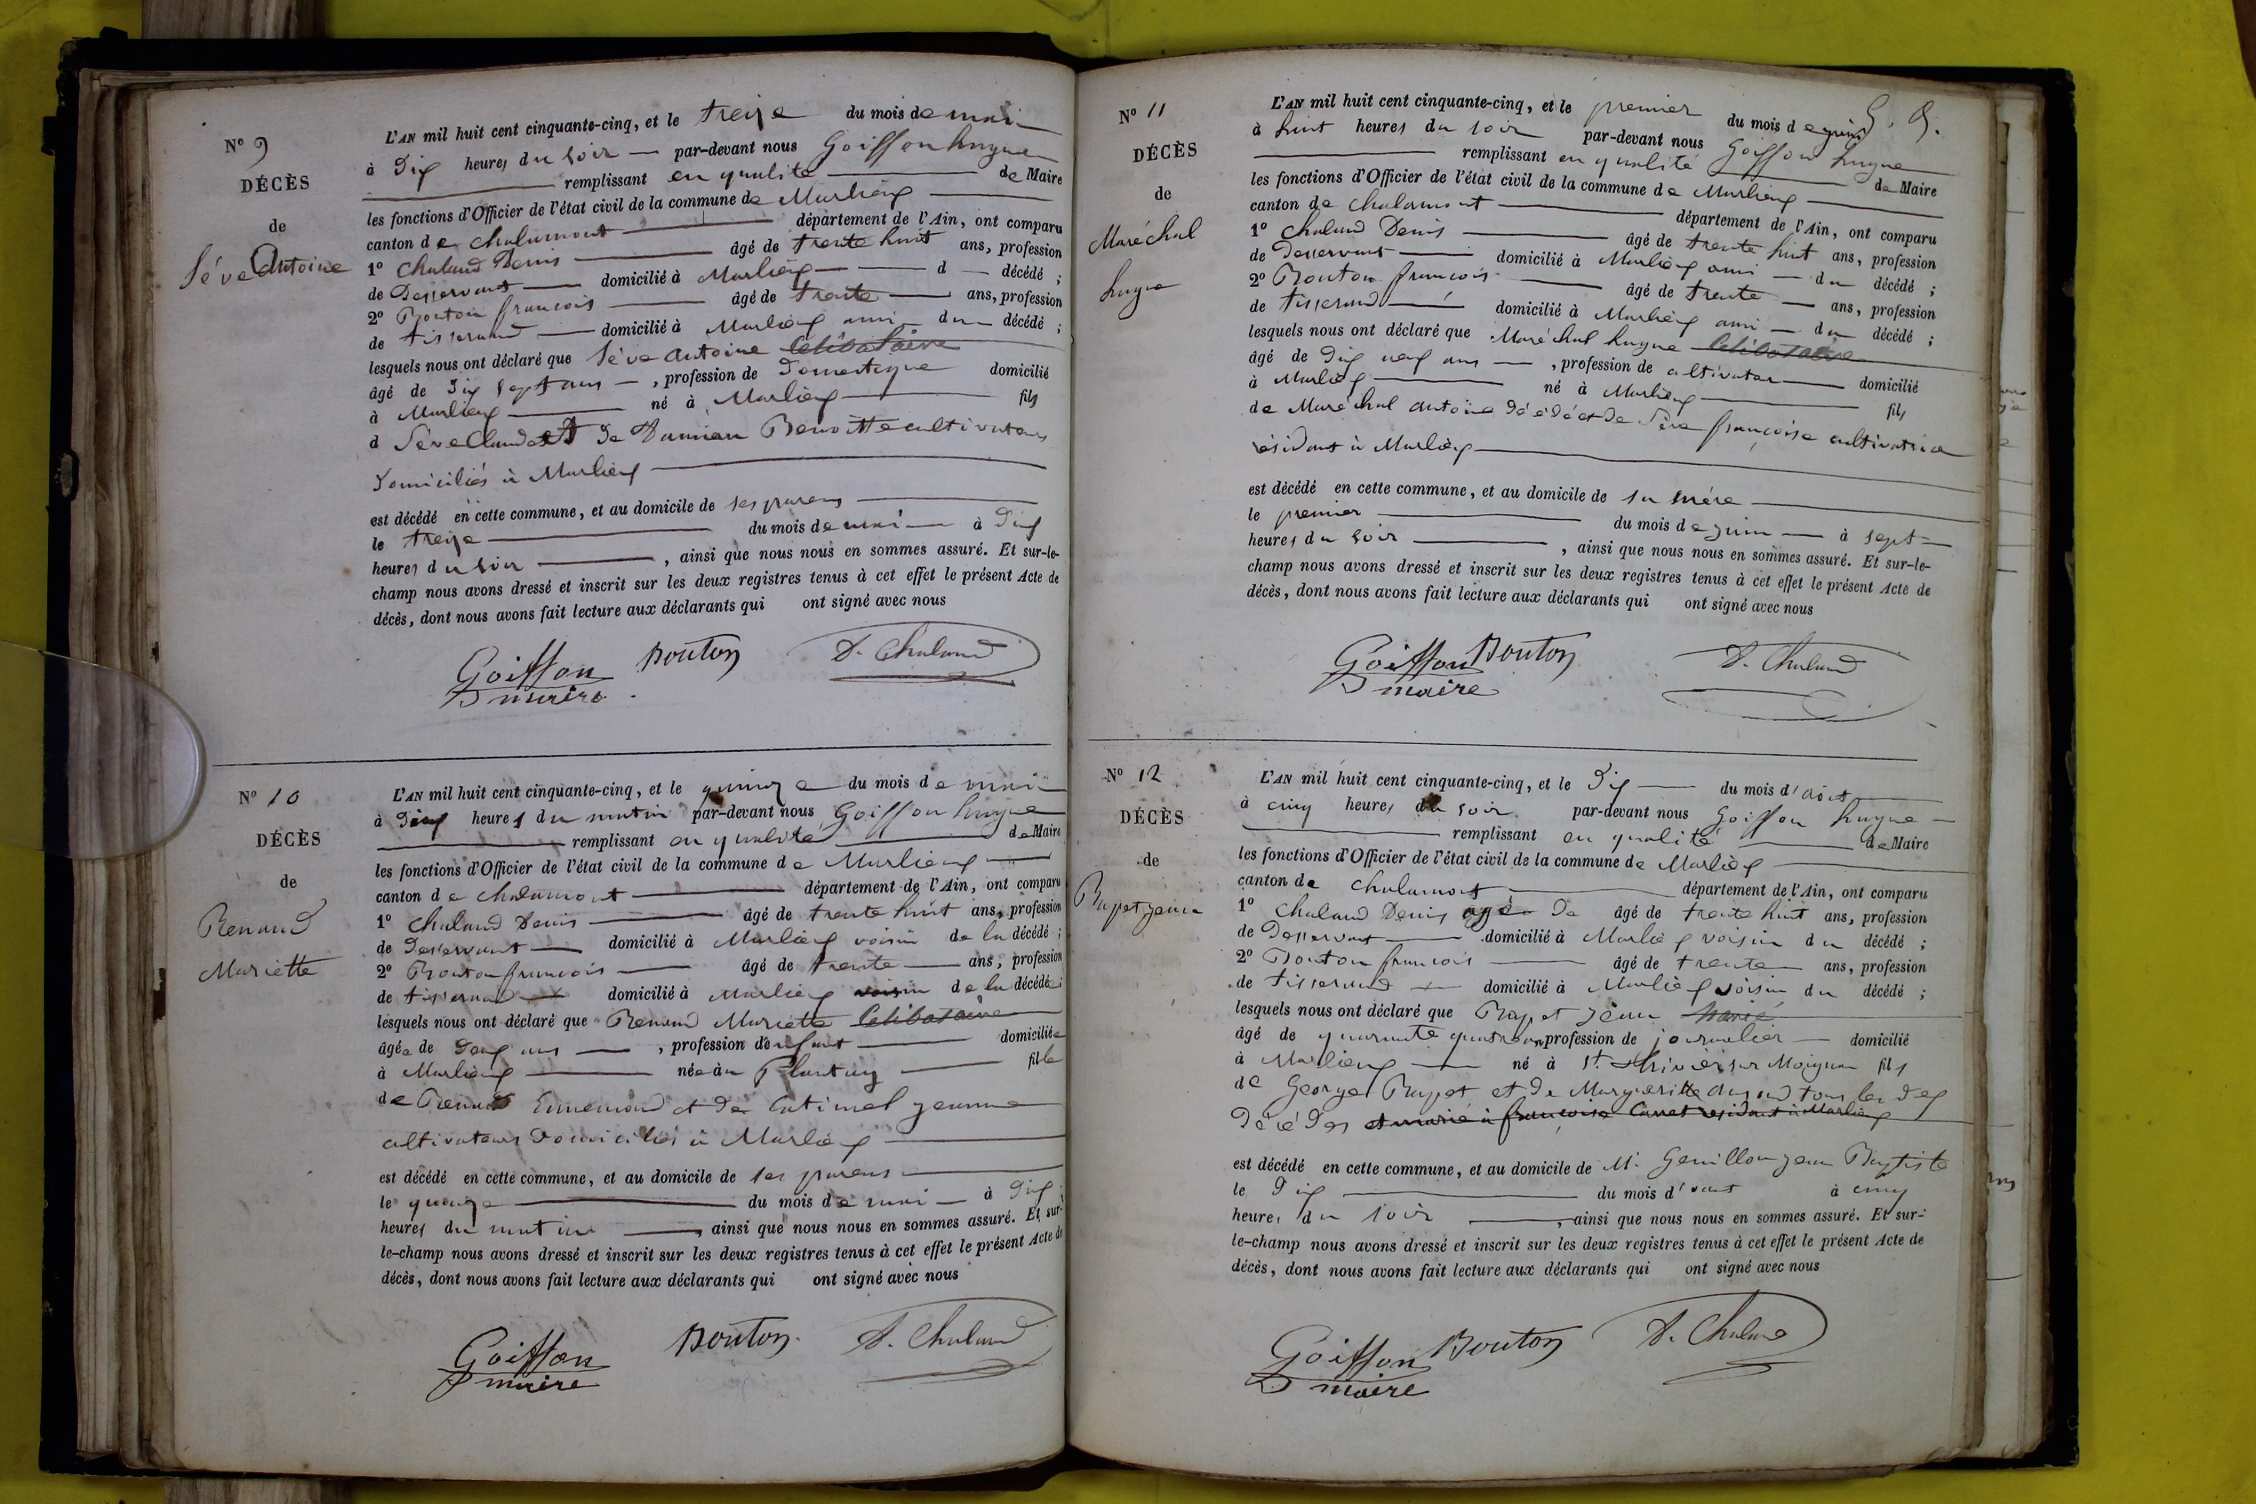 N° 9
DÉCÈS
de
Séve Antoine
L'AN mil huit cent cinquante-cinq, et le treize du mois de mai
à dix heures du soir par-devant nous Goiffon hugue
remplissant en qualité de Maire
les fonctions d'Officier de l'état civil de la commune de Marlieux
canton de chalamont département de l'Ain, ont comparu
1° Chaland Denis âgé de trente huit ans, profession
de Desservant domicilié à Marlieux d décédé ;
2° Bouton francois âgé de trente ans, profession
de tisserand domicilié à Marlieux ami du décédé ;
lesquels nous ont déclaré que Séve Antoine Célibataire
âgé de dix sept ans , profession de Domestique domicilié
à Marlieux né à Marlieux fils
d Séve Claude et de Damian Benoitte cultivateurs
Domiciliés à Marlieux
est décédé en cette commune, et au domicile de ses parens
le treize du mois de mai à dix
heures du soir , ainsi que nous nous en sommes assuré. Et sur-le-
champ nous avons dressé et inscrit sur les deux registres tenus à cet effet le présent Acte de
décès, dont nous avons fait lecture aux déclarants qui ont signé avec nous
Goiffon Bouton D. Chaland
maire
N° 10
DÉCÈS
de
Renaud
Mariette
L'AN mil huit cent cinquante-cinq, et le quinze du mois de mai
à dix heures du matin par-devant nous Goiffon hugue
remplissant en qualité de Maire
les fonctions d'Officier de l'état civil de la commune de Marlieux
canton de chalamont département de l'Ain, ont comparu
1° Chaland Denis âgé de trente huit ans, profession
de Desservant domicilié à Marlieux voisin de la décédé ;
2° Bouton francois âgé de trente ans, profession
de tisserand domicilié à Marlieux voisin de la décédée
lesquels nous ont déclaré que Renaud Mariette Célibataire
âgée de deux ans , profession d'enfant domiciliée
à Marlieux née au Plantay fille
de Renaud Ennemond et de Catimel jeanne
cultivateurs Domiciliés à Marlieux
est décédé en cette commune, et au domicile de ses parens
le quinze du mois de mai à dix
heures du matin , ainsi que nous nous en sommes assuré. Et sur-
le-champ nous avons dressé et inscrit sur les deux registres tenus à cet effet le présent Acte de
décès, dont nous avons fait lecture aux déclarants qui ont signé avec nous
Goiffon Bouton D. Chaland
maire
N° 11
DÉCÈS
de
Maréchal
hugue
L'AN mil huit cent cinquante-cinq, et le premier du mois de juin
à huit heures du soir par-devant nous Goiffon hugue
remplissant en qualité de Maire
les fonctions d'Officier de l'état civil de la commune de Marlieux
canton de chalamont département de l'Ain, ont comparu
1° Chaland Denis âgé de trente huit ans, profession
de Desservant domicilié à Marlieux ami du décédé ;
2° Bouton francois âgé de trente ans, profession
de tisserand domicilié à Marlieux ami du décédé ;
lesquels nous ont déclaré que Maréchal hugue Célibataire
âgé de dix neuf ans , profession de cultivateur domicilié
à Marlieux né à Marlieux fils
de Maréchal antoine décédé et de Séve françoise cultivatrice
résidant à Marlieux
est décédé en cette commune, et au domicile de sa mére
le premier du mois de juin à sept
heures du soir , ainsi que nous nous en sommes assuré. Et sur-le-
champ nous avons dressé et inscrit sur les deux registres tenus à cet effet le présent Acte de
décès, dont nous avons fait lecture aux déclarants qui ont signé avec nous
Goiffon Bouton D. Chaland
maire
N° 12
DÉCÈS
de
Rapet jean
L'AN mil huit cent cinquante-cinq, et le dix du mois d'août
à cinq heures du soir par-devant nous Goiffon hugue
remplissant en qualité de Maire
les fonctions d'Officier de l'état civil de la commune de Marlieux
canton de chalamont département de l'Ain, ont comparu
1° Chaland Denis agé de âgé de trente huit ans, profession
de Desservant domicilié à Marlieux voisin du décédé ;
2° Bouton francois âgé de trente ans, profession
de tisserand domicilié à Marlieux voisin du décédé ;
lesquels nous ont déclaré que Rapet jean marié
âgé de quarante quatre ans profession de journalier domicilié
à Marlieux né à St. thrivier sur Moignan fils
de George Rappet et de Margueritte durand tous les deux
décédés et marié à françoise Carret résidant à Marlieux
est décédé en cette commune, et au domicile de Mr. Genillon jean Baptiste
le dix du mois d'aout à cinq
heures du soir , ainsi que nous nous en sommes assuré. Et sur-
le-champ nous avons dressé et inscrit sur les deux registres tenus à cet effet le présent Acte de
décès, dont nous avons fait lecture aux déclarants qui ont signé avec nous
Goiffon Bouton D. Chaland
maire